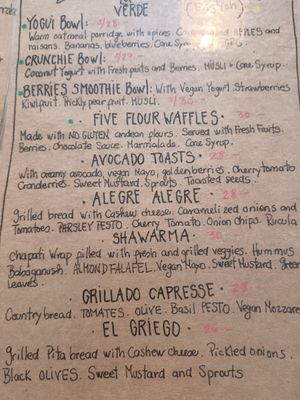 VERDE
(English)
• YOGUI Bowl: S/28.-
Warm oatmeal porridge with spices. Caramelized APPLES and
raisons. Bananas, blueberries. Cane Syrup.
• CRUNCHIE Bowl: S/29.-
Coconut Yogurt with Fresh fruits and Berries. MUSLI + Cane Syrup.
• BERRIES SMOOTHIE Bowl: With Vegan Yogurt. Strawberries
Kiwifruit. Prickly pear fruit. MUSLI. S/30.-
• FIVE FLOUR WAFFLES • 30
Made with NO GLUTEN andean flours. Served with Fresh Fruits.
Berries. Chocolate Sauce. Marmalade. Cane Syrup.
AVOCADO TOASTS • 28
with creamy avocado, vegan Mayo, goldenberries, cherry tomato
Cranberries. Sweet Mustard. Sprouts. Toasted seeds.
• ALEGRE ALEGRE • 28
grilled bread with Cashew cheese. Caramelized onions and
Tomatoes. PARSLEY PESTO. Cherry Tomato. Onion Chips. Rucula
• SHAWARMA • 30
Chapati Wrap filled with fresh and grilled veggies. Hummus
Babaganush. ALMOND FALAFEL. Vegan Mayo. Sweet Mustard. Green
leaves.
• GRILLADO CAPRESSE • 28.-
Country bread. TOMATES. OLIVE. Basil PESTO. Vegan Mozzare
• EL GRIEGO • 26
grilled Pita bread with Cashew cheese. Pickled onions.
Black OLIVES. Sweet Mustard and Sprouts